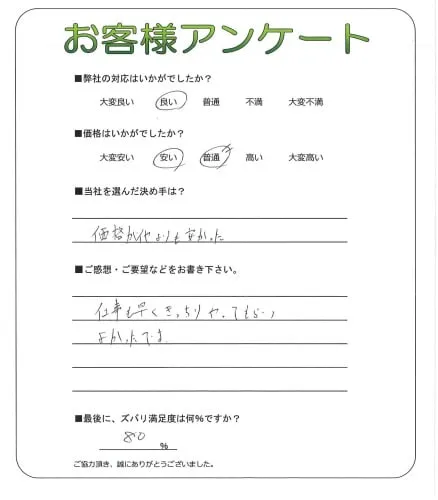 お客様アンケート
■弊社の対応はいかがでしたか？
大変良い 良い 普通 不満 大変不満
■価格はいかがでしたか？
大変安い 安い 普通 高い 大変高い
■当社を選んだ決め手は？
価格が他よりも安かった
■ご感想・ご要望などをお書き下さい。
仕事も早くきっちりやってもらい
よかったです
■最後に、ズバリ満足度は何％ですか？
80 %
ご協力頂き、誠にありがとうございました。